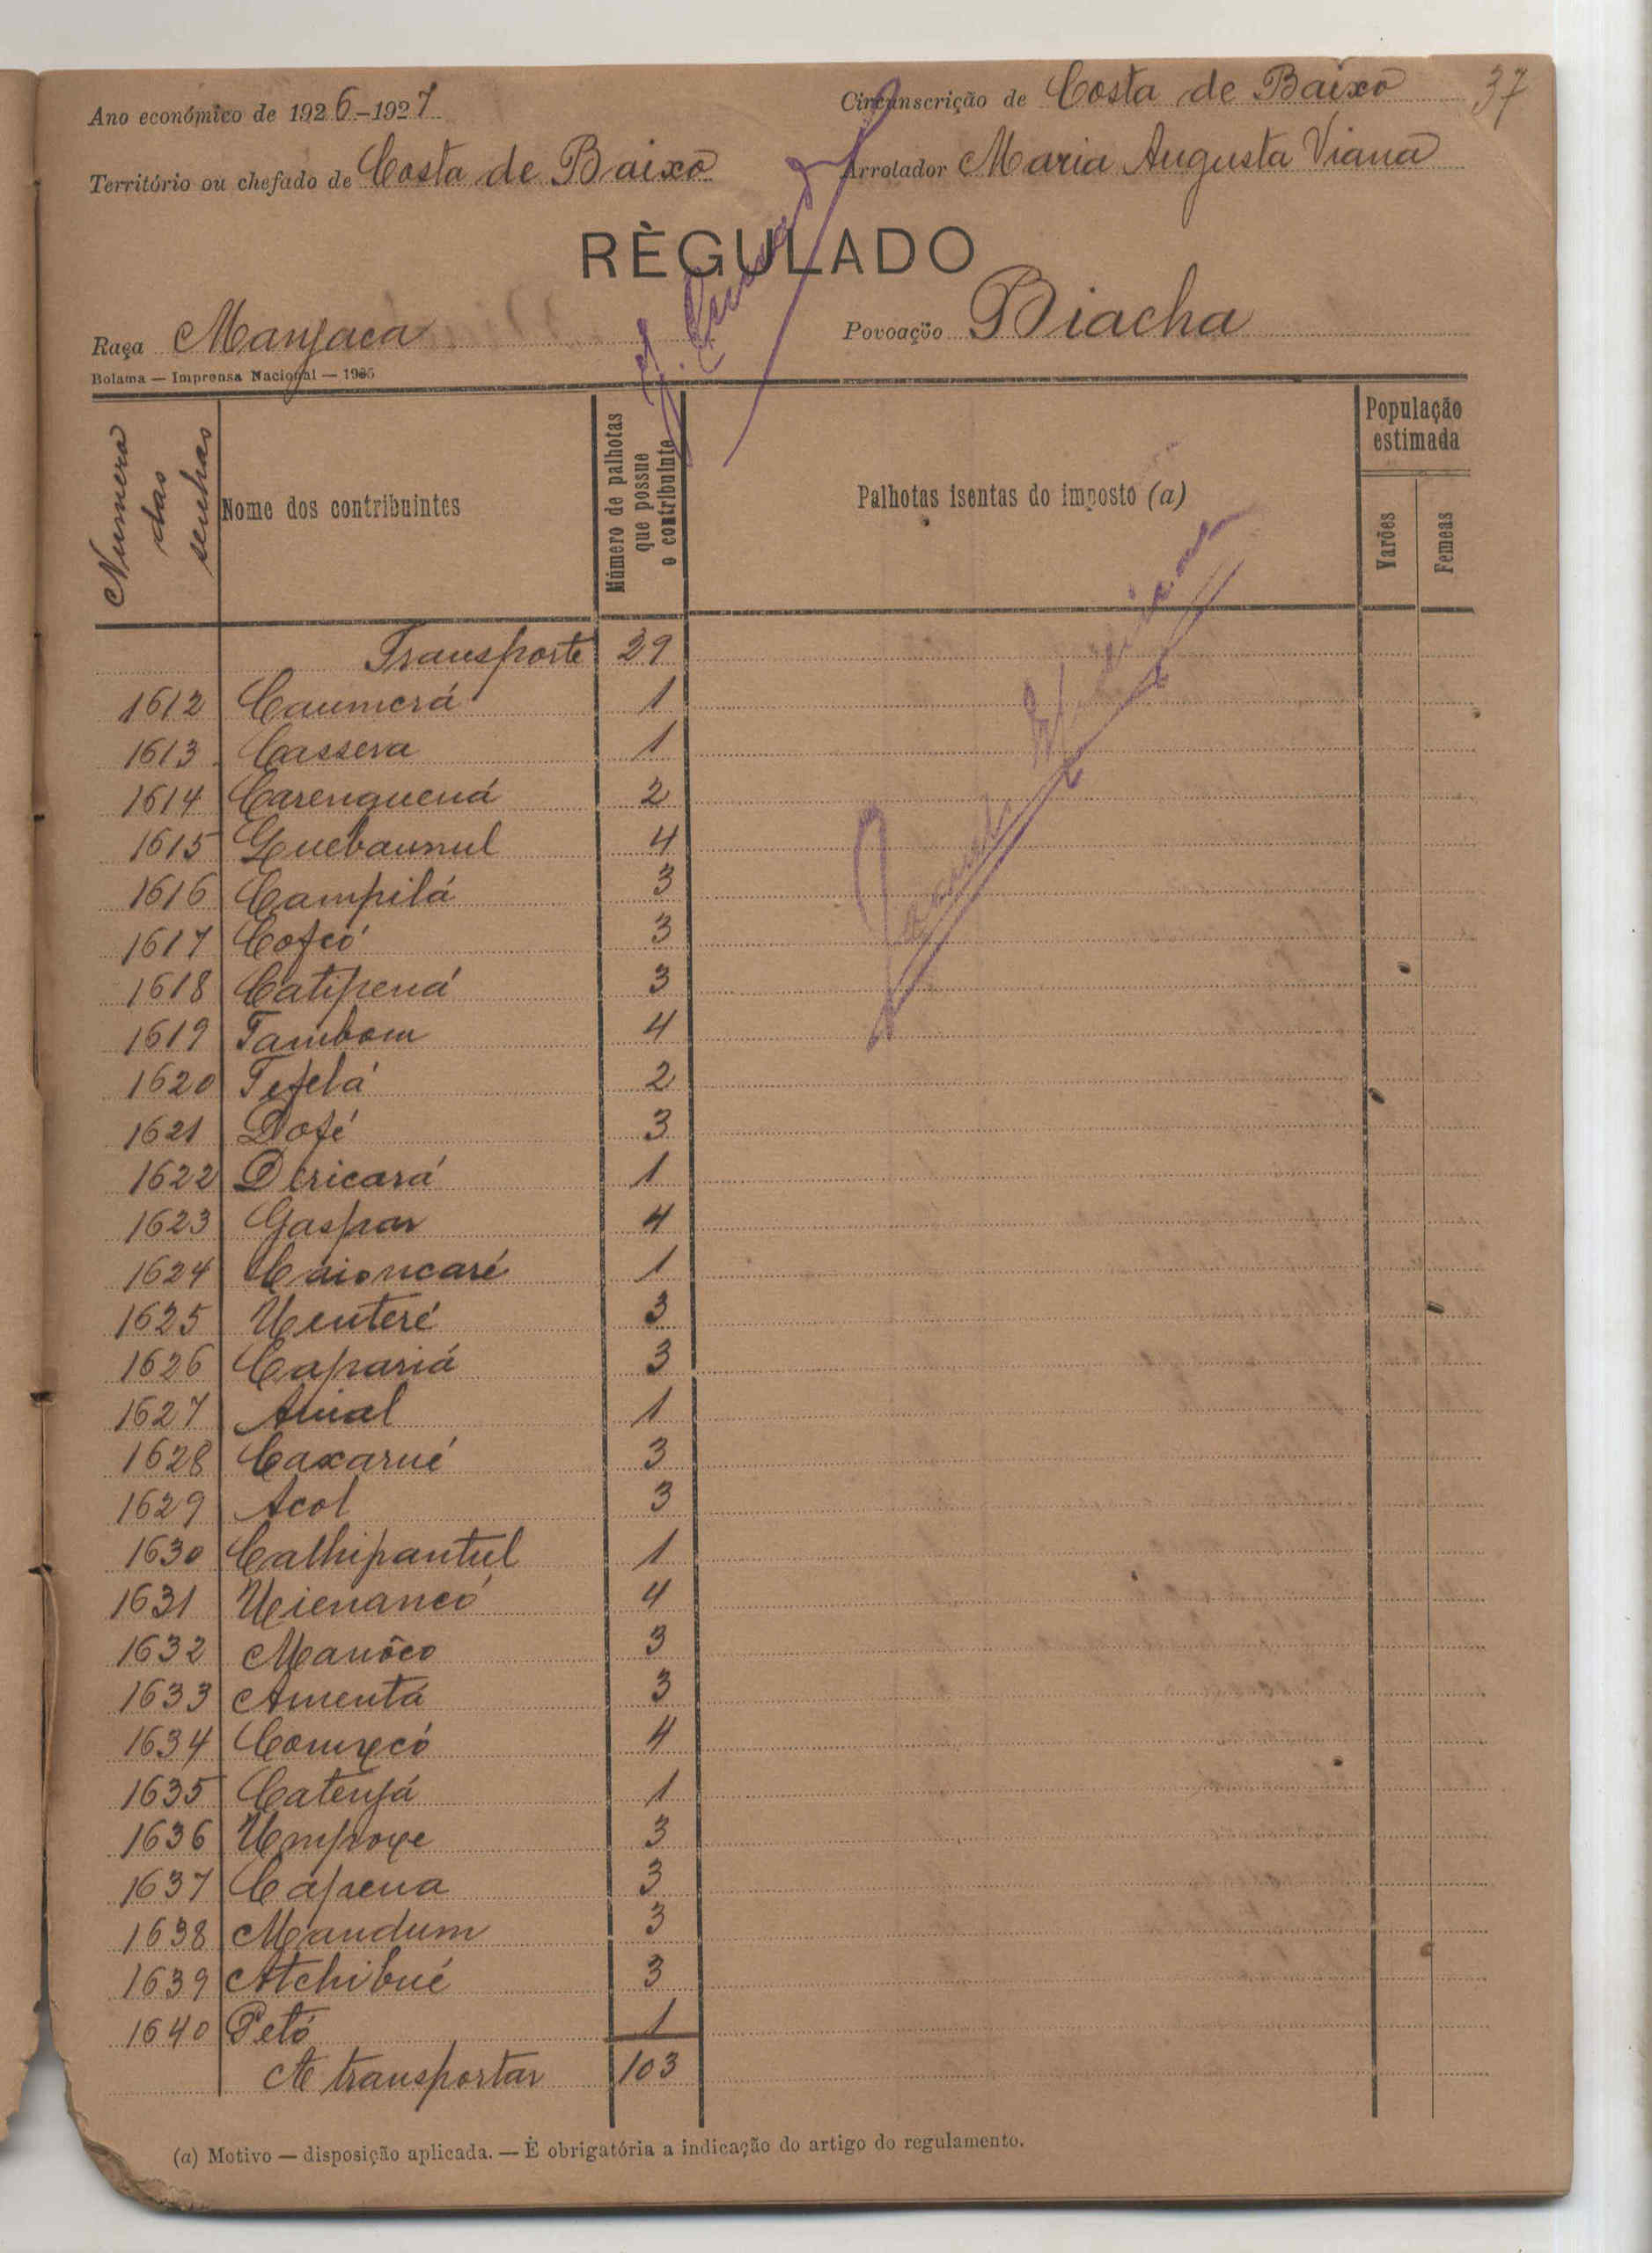 37
Ano económico de 1926-1927 Circunscrição de Costa de Baixo
Território ou chefado de Costa de Baixo Arrolador Maria Augusta Viana
RÈGULADO
Raça Manjaca Povoação Biacha
Bolama — Imprensa Nacional — 1925
Numero das senhas Nome dos contribuintes Número de palhotas que possue o contribuinte Palhotas isentas do imposto (a) População estimada Varões Femeas
Transporte 29
1612 Caumerá 1
1613 Cassera 1
1614 Carenguená 2
1615 Guebaunul 4
1616 Campilá 3
1617 Cofcó 3
1618 Catipená 3
1619 Tambom 4
1620 Tefelá 2
1621 Dofé 3
1622 Dericará 1
1623 Gaspar 4
1624 Caioncaré 1
1625 Uenteré 3
1626 Capariá 3
1627 Anial 1
1628 Caxarué 3
1629 Acol 3
1630 Calhipantul 1
1631 Uienancó 4
1632 Manôco 3
1633 Amentá 3
1634 Comxecó 4
1635 Catenjá 1
1636 Umpoxe 3
1637 Caprena 3
1638 Mandum 3
1639 Atchibué 3
1640 Petó 1
A transportar 103
(a) Motivo — disposição aplicada. — È obrigatória a indicação do artigo do regulamento.